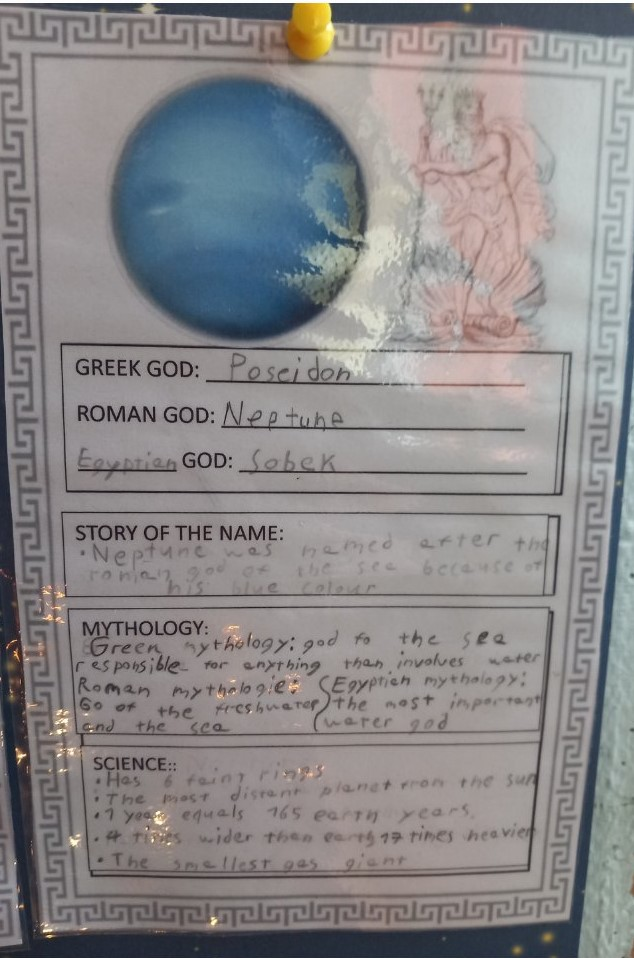 GREEK GOD: Poseidon
ROMAN GOD: Neptune
Egyptian GOD: Sobek
STORY OF THE NAME:
•Neptune was named after the
roman god of the sea because of
his blue colour
MYTHOLOGY:
Green mythology: god fo the sea
responsible for anything than involves water
Roman mythologie:
Go of the freshwater
and the sea
Egyptian mythology:
the most important
water god
SCIENCE::
•Has 6 faint rings
•The most distant planet from the sun
•1 year equals 165 earth years.
•4 times wider than earth, 17 times heavier
•The smallest gas giant